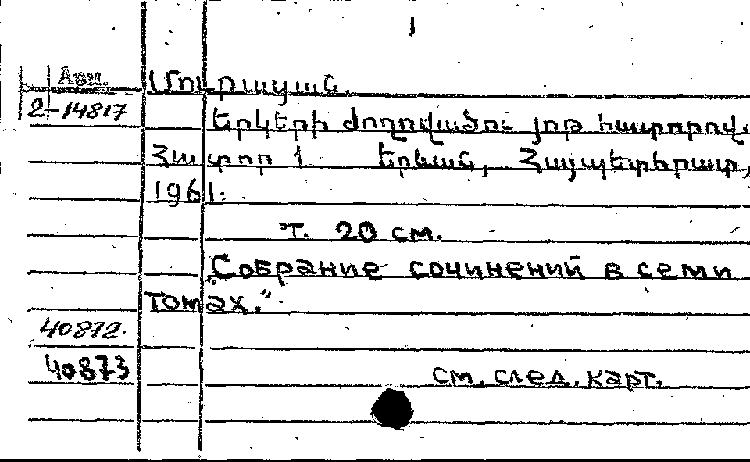 1
Арм.
Մուրացան.
2-14817
Երկերի ժողովածու յոթ հատորով.
Հատոր 1. Երևան, Հայպետհրատ,
1961.
т. 20 см.
„Собрание сочинений в семи
томах."
40872.
40873
см. след. карт.